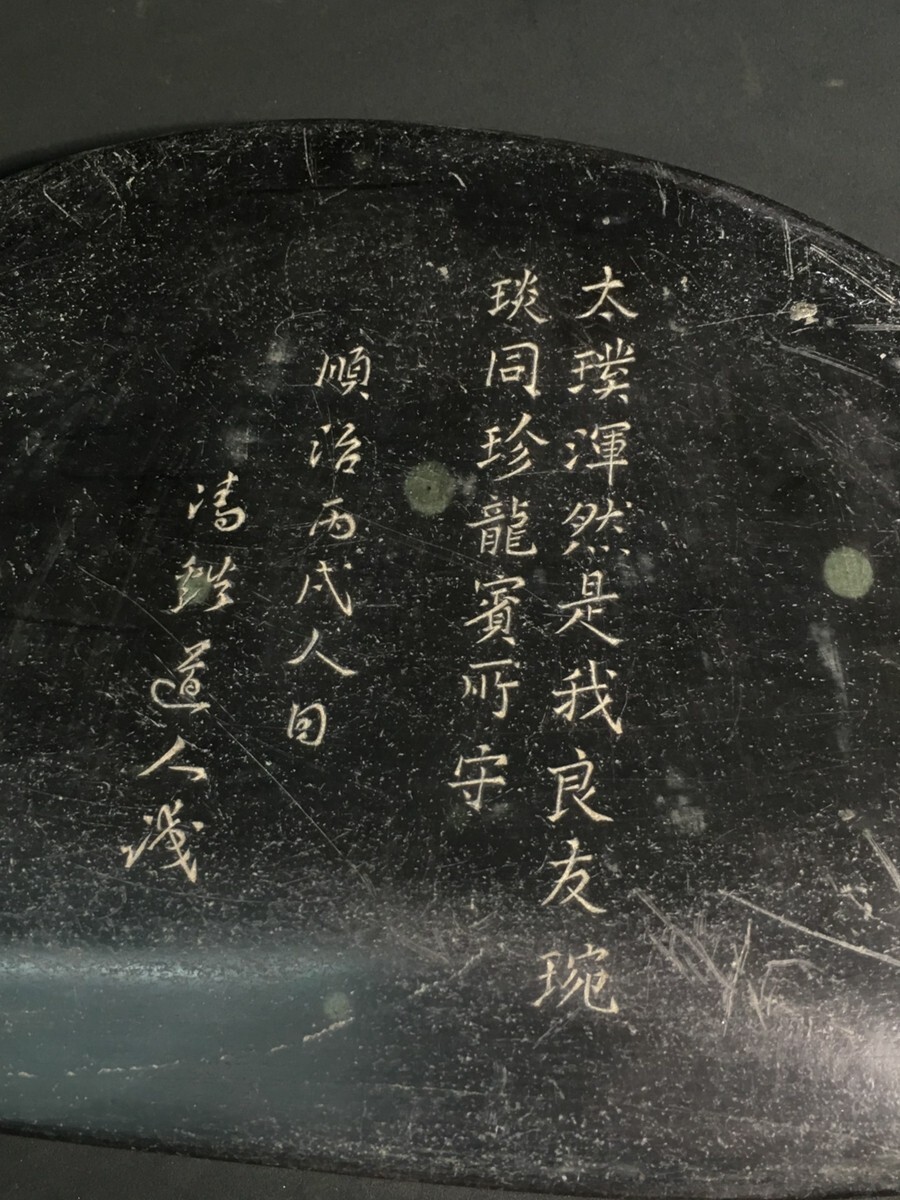 太璞渾然是我良友琬
琰同珍龍賓所守
順治丙戌人日
道人識